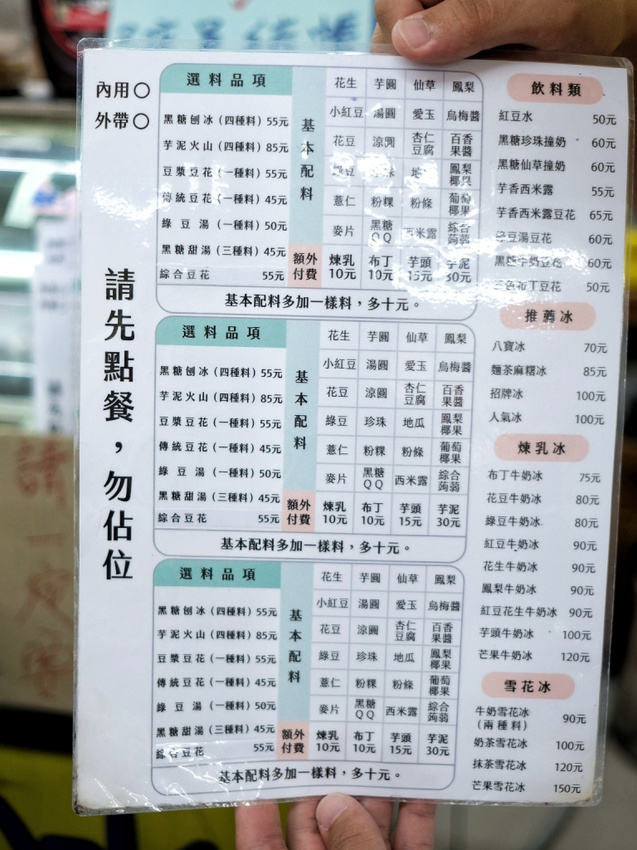 內用○
外帶○
請先點餐，勿佔位
選料品項
黑糖刨冰（四種料）55元
芋泥火山（四種料）85元
豆漿豆花（一種料）55元
傳統豆花（一種料）45元
綠豆湯（一種料）50元
黑糖甜湯（三種料）45元
綜合豆花 55元
基本配料
花生 芋圓 仙草 鳳梨
小紅豆 湯圓 愛玉 烏梅醬
花豆 涼圓 杏仁豆腐 百香果醬
綠豆 地瓜 鳳梨椰果
薏仁 粉粿 粉條 葡萄椰果
麥片 黑糖QQ 西米露 綜合蒟蒻
額外付費
煉乳10元 布丁10元 芋頭15元 芋泥30元
基本配料多加一樣料，多十元。
選料品項
黑糖刨冰（四種料）55元
芋泥火山（四種料）85元
豆漿豆花（一種料）55元
傳統豆花（一種料）45元
綠豆湯（一種料）50元
黑糖甜湯（三種料）45元
綜合豆花 55元
基本配料
花生 芋圓 仙草 鳳梨
小紅豆 湯圓 愛玉 烏梅醬
花豆 涼圓 杏仁豆腐 百香果醬
綠豆 珍珠 地瓜 鳳梨椰果
薏仁 粉粿 粉條 葡萄椰果
麥片 黑糖QQ 西米露 綜合蒟蒻
額外付費
煉乳10元 布丁10元 芋頭15元 芋泥30元
基本配料多加一樣料，多十元。
選料品項
黑糖刨冰（四種料）55元
芋泥火山（四種料）85元
豆漿豆花（一種料）55元
傳統豆花（一種料）45元
綠豆湯（一種料）50元
黑糖甜湯（三種料）45元
綜合豆花 55元
基本配料
花生 芋圓 仙草 鳳梨
小紅豆 湯圓 愛玉 烏梅醬
花豆 涼圓 杏仁豆腐 百香果醬
綠豆 珍珠 地瓜 鳳梨椰果
薏仁 粉粿 粉條 葡萄椰果
麥片 黑糖QQ 西米露 綜合蒟蒻
額外付費
煉乳10元 布丁10元 芋頭15元 芋泥30元
基本配料多加一樣料，多十元。
飲料類
紅豆水 50元
黑糖珍珠撞奶 60元
黑糖仙草撞奶 60元
芋香西米露 55元
芋香西米露豆花 65元
綠豆湯豆花 60元
黑糖牛奶豆花 60元
三色布丁豆花 50元
推薦冰
八寶冰 70元
麵茶麻糬冰 85元
招牌冰 100元
人氣冰 100元
煉乳冰
布丁牛奶冰 75元
花豆牛奶冰 80元
綠豆牛奶冰 80元
紅豆牛奶冰 90元
花生牛奶冰 90元
鳳梨牛奶冰 90元
紅豆花生牛奶冰 90元
芋頭牛奶冰 100元
芒果牛奶冰 120元
雪花冰
牛奶雪花冰 90元
（兩種料）
奶茶雪花冰 100元
抹茶雪花冰 120元
芒果雪花冰 150元